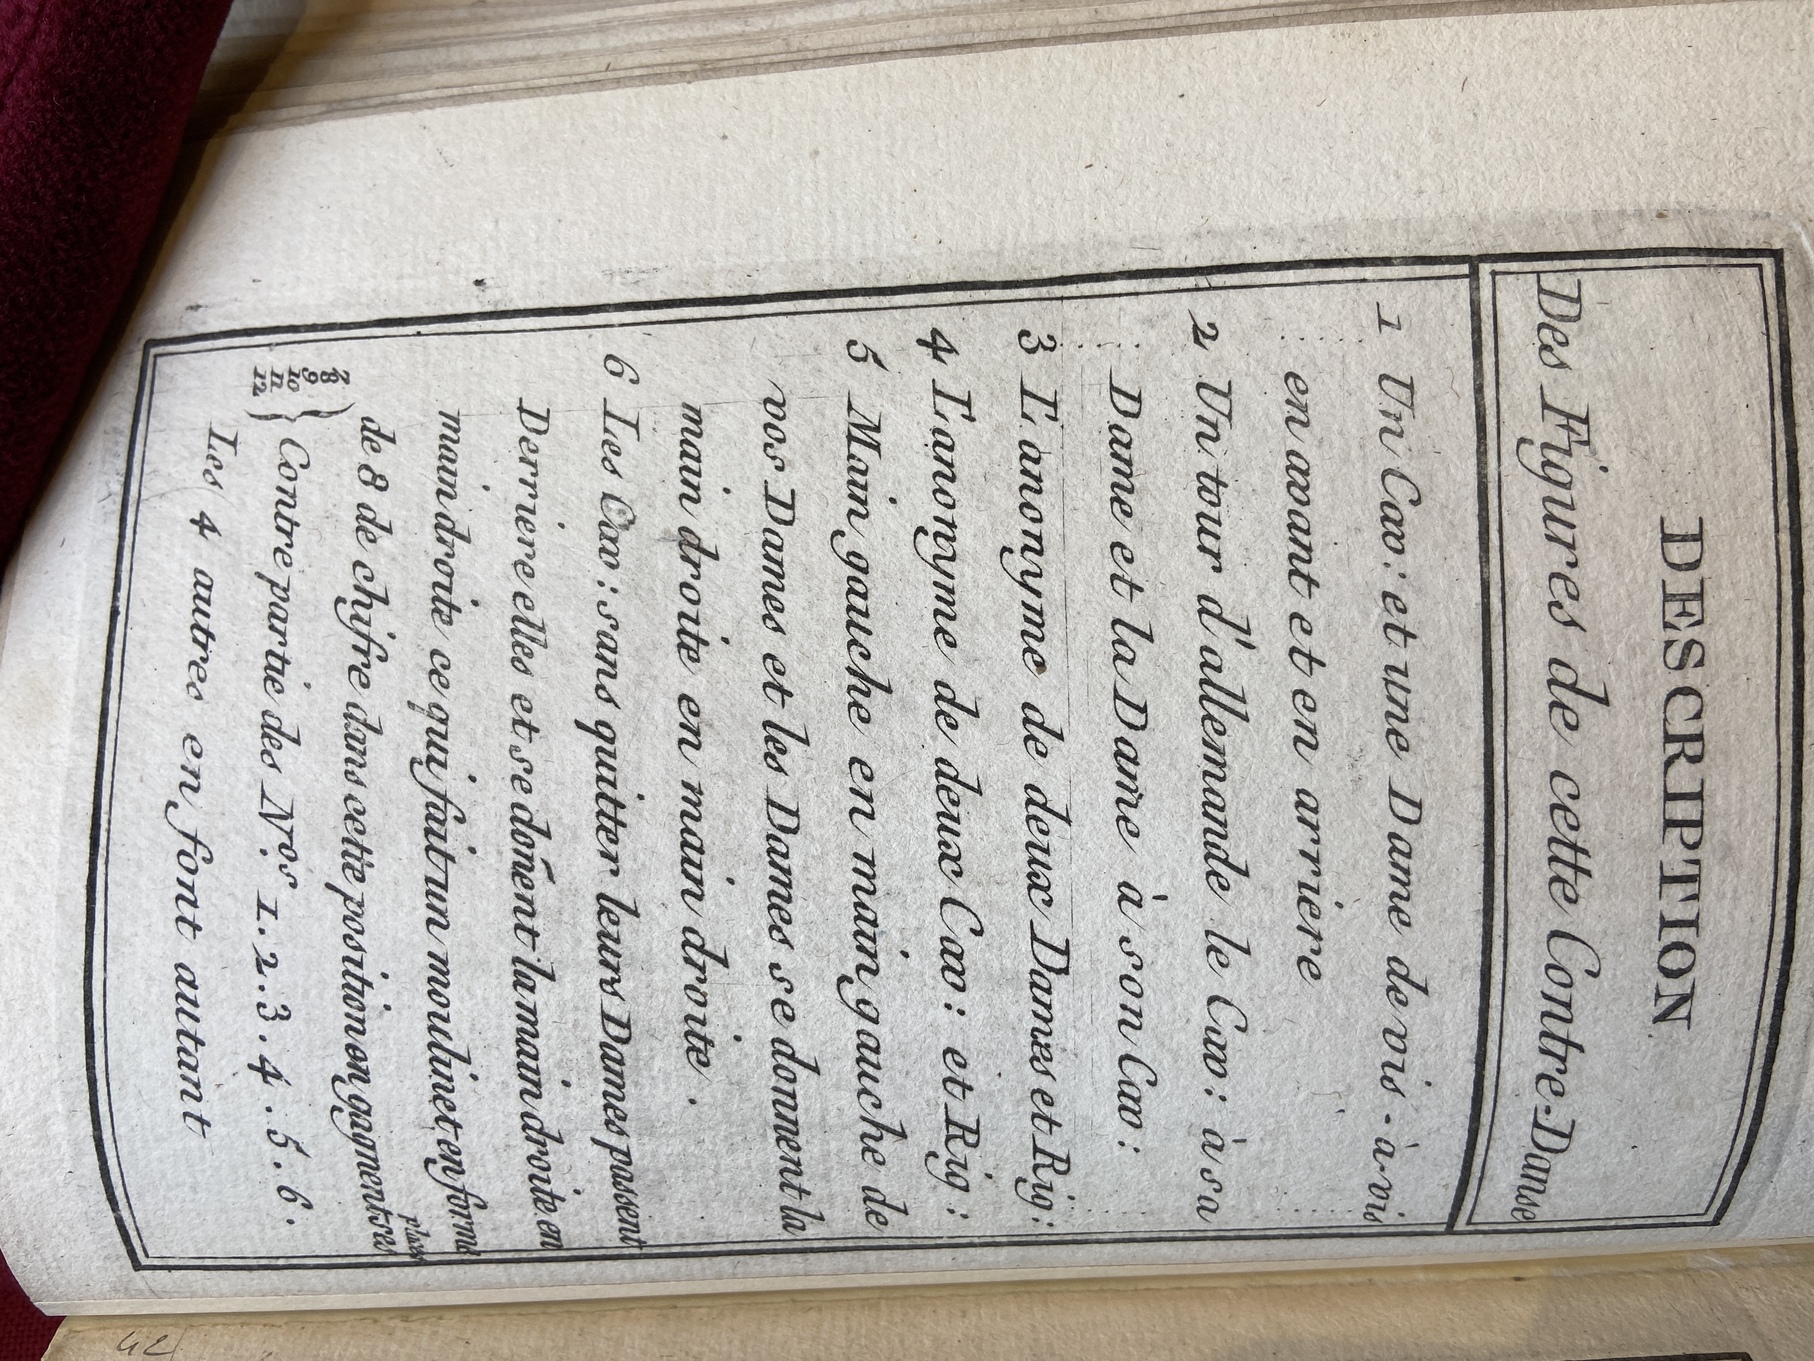 DESCRIPTION
Des Figures de cette Contre-Danse
1 Un Cav: et une Dame de vis-à-vis
en avant et en arriere
2 Un tour d'allemande le Cav: à sa
Dame et la Dame à son Cav:
3 L'anonyme de deux Dames et Rig:
4 L'anonyme de deux Cav: et Rig:
5 Main gauche en main gauche de
vos Dames et les Dames se donnent la
main droite en main droite.
6 Les Cav: sans quitter leurs Dames passent
Derriere elles et se donent la main droite en
main droite ce qui fait un moulinet en forme
de 8 de chifre dans cette position on gagnent ses
places
7
8
9
10
11
12
Contre partie des Nros 1. 2. 3. 4. 5. 6.
Les 4 autres en font autant
42